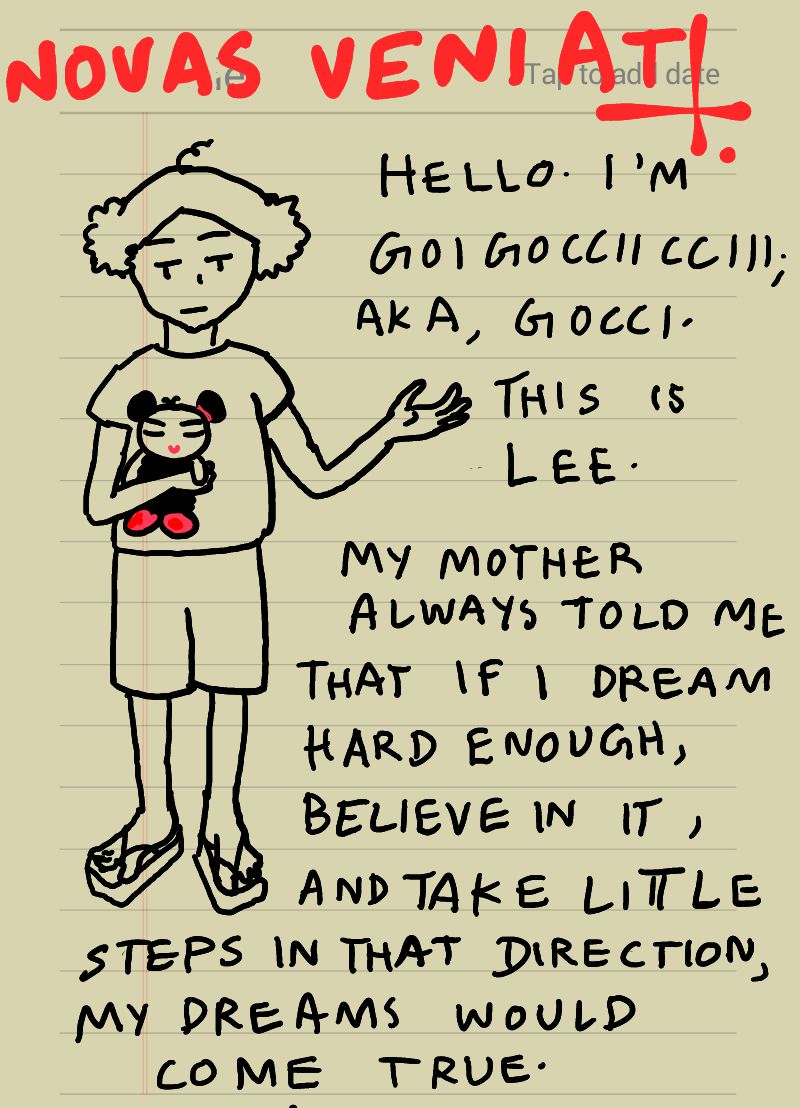 NOVAS VENIAT!.
Tap to add date
HELLO. I'M
GOIGOCCIICCIII;
AKA, GOCCI.
THIS IS
LEE.
MY MOTHER
ALWAYS TOLD ME
THAT IF I DREAM
HARD ENOUGH,
BELIEVE IN IT,
AND TAKE LITTLE
STEPS IN THAT DIRECTION,
MY DREAMS WOULD
COME TRUE.